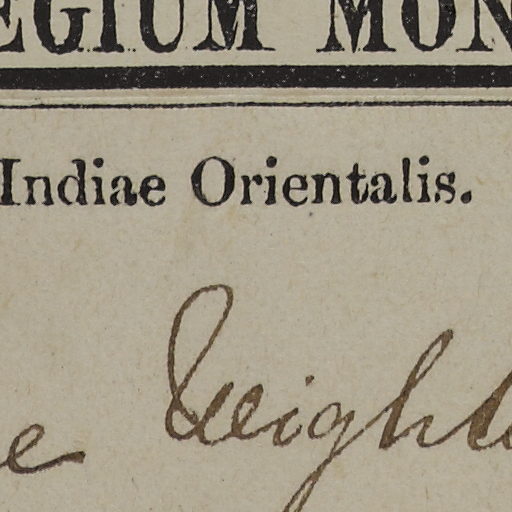 EGIUM MON
Indiae Orientalis.
e Weight